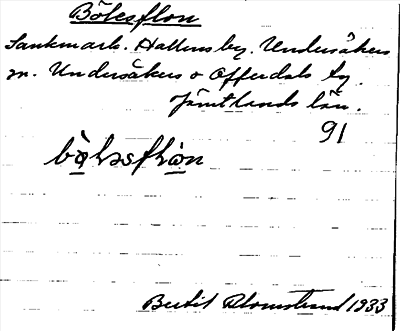 Bölesflon
Sankmark. Hallens by. Undersåkers
sn. Undersåkers o Offerdals tg.
Jämtlands län.
91
bö̀ləsflòn
Bertil Blomstrand 1933